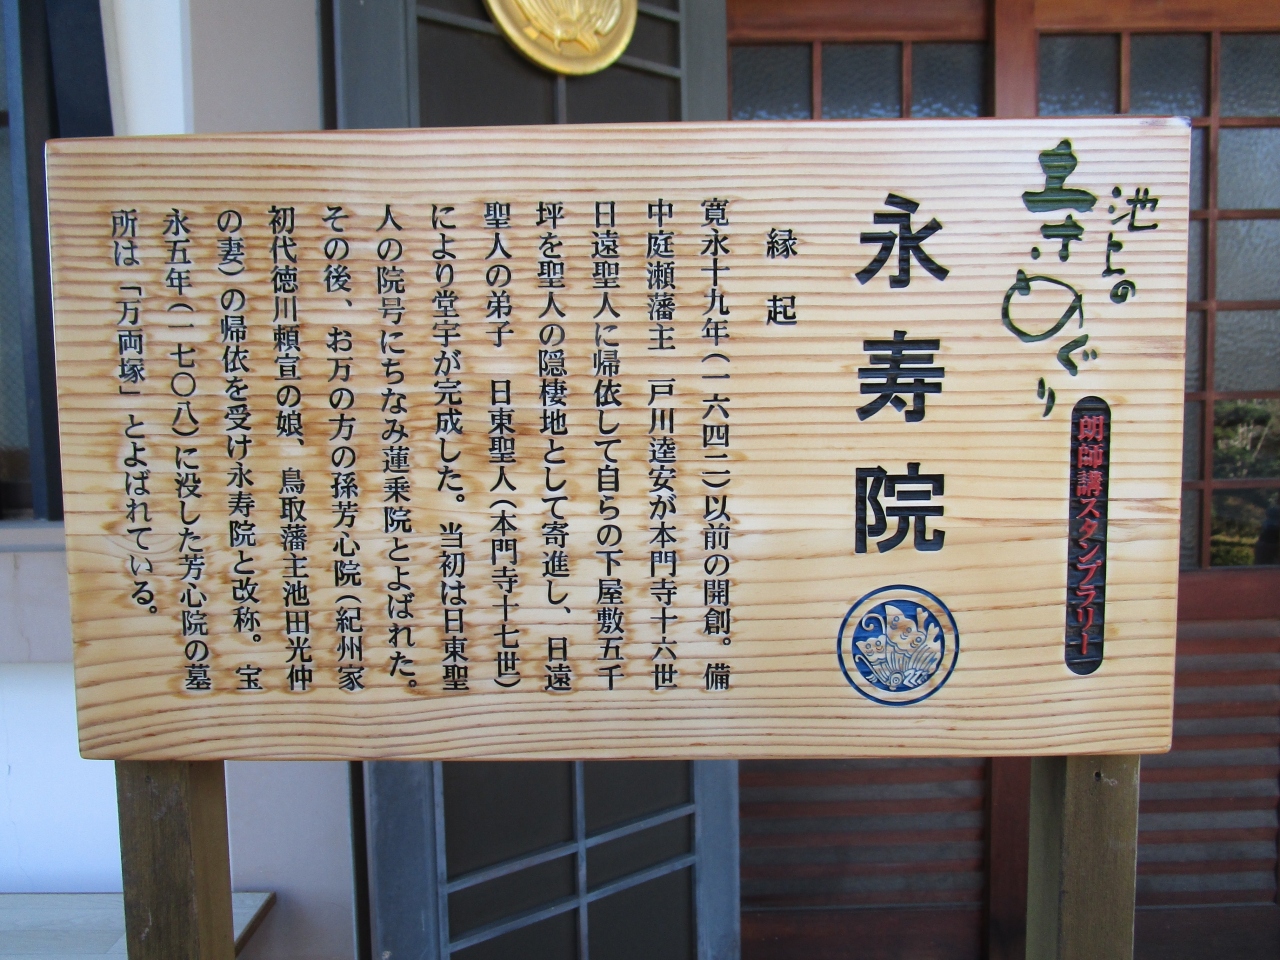 池上の
寺めぐり
朗師講スタンプラリー
永寿院
縁起
寛永十九年(一六四二)以前の開創。備
中庭瀬藩主 戸川逵安が本門寺十六世
日遠聖人に帰依して自らの下屋敷五千
坪を聖人の隠棲地として寄進し、日遠
聖人の弟子 日東聖人(本門寺十七世)
により堂宇が完成した。当初は日東聖
人の院号にちなみ蓮乗院とよばれた。
その後、お万の方の孫芳心院(紀州家
初代徳川頼宣の娘、鳥取藩主池田光仲
の妻)の帰依を受け永寿院と改称。宝
永五年(一七〇八)に没した芳心院の墓
所は「万両塚」とよばれている。